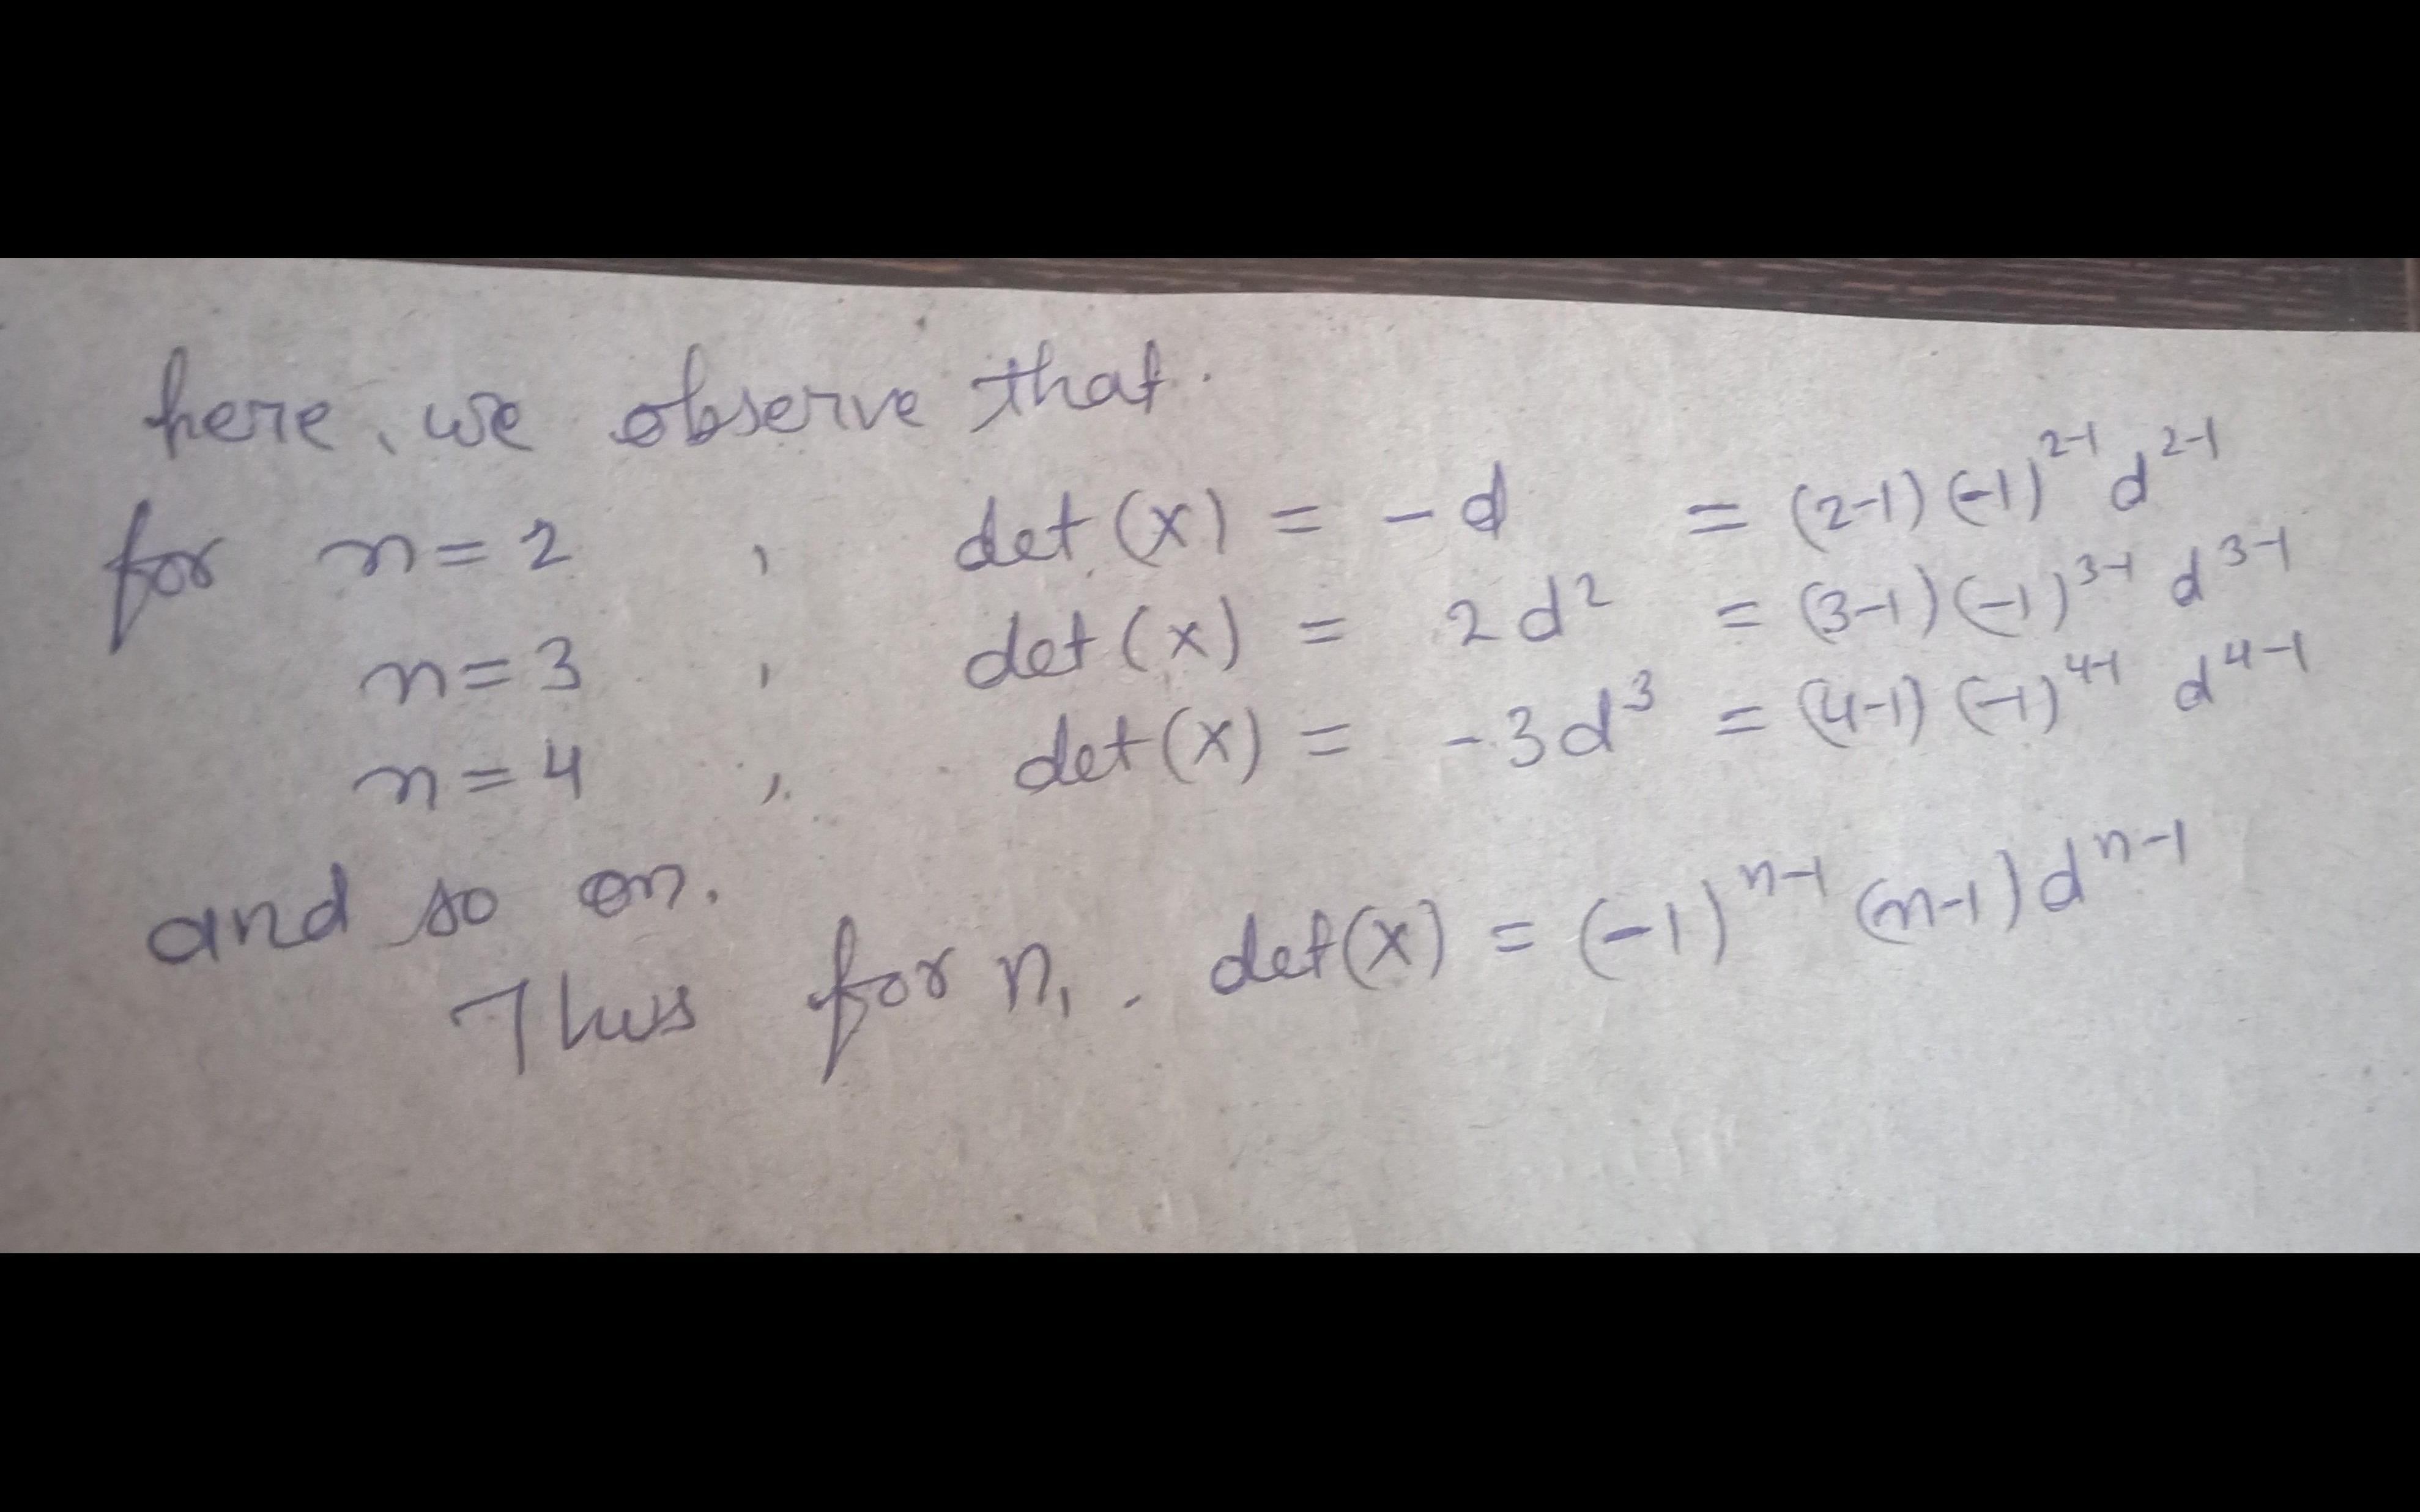 here, we observe that.
for n = 2 , det (x) = - d = (2-1) (-1)^{2-1} d^{2-1}
n = 3 , det (x) = 2d^2 = (3-1) (-1)^{3-1} d^{3-1}
n = 4 , det (x) = - 3d^3 = (4-1) (-1)^{4-1} d^{4-1}
and so on.
Thus for n, . det(x) = (-1)^{n-1} (n-1) d^{n-1}